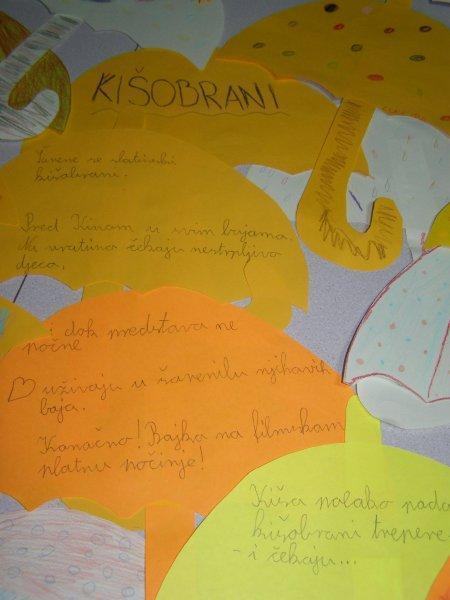 KIŠOBRANI
kišobrani.
Pred Kinom u svim bojama.
Na vratima čekaju nestrpljivo
djeca,
i dok predstava ne
počne
uživaju u šarenilu njihovih
boja.
Konačno! Bajka na filmskom
platnu počinje!
Kiša polako pada
kišobrani trepere
- i čekaju...